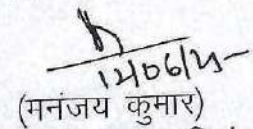 12/06/25
(मनंजय कुमार)